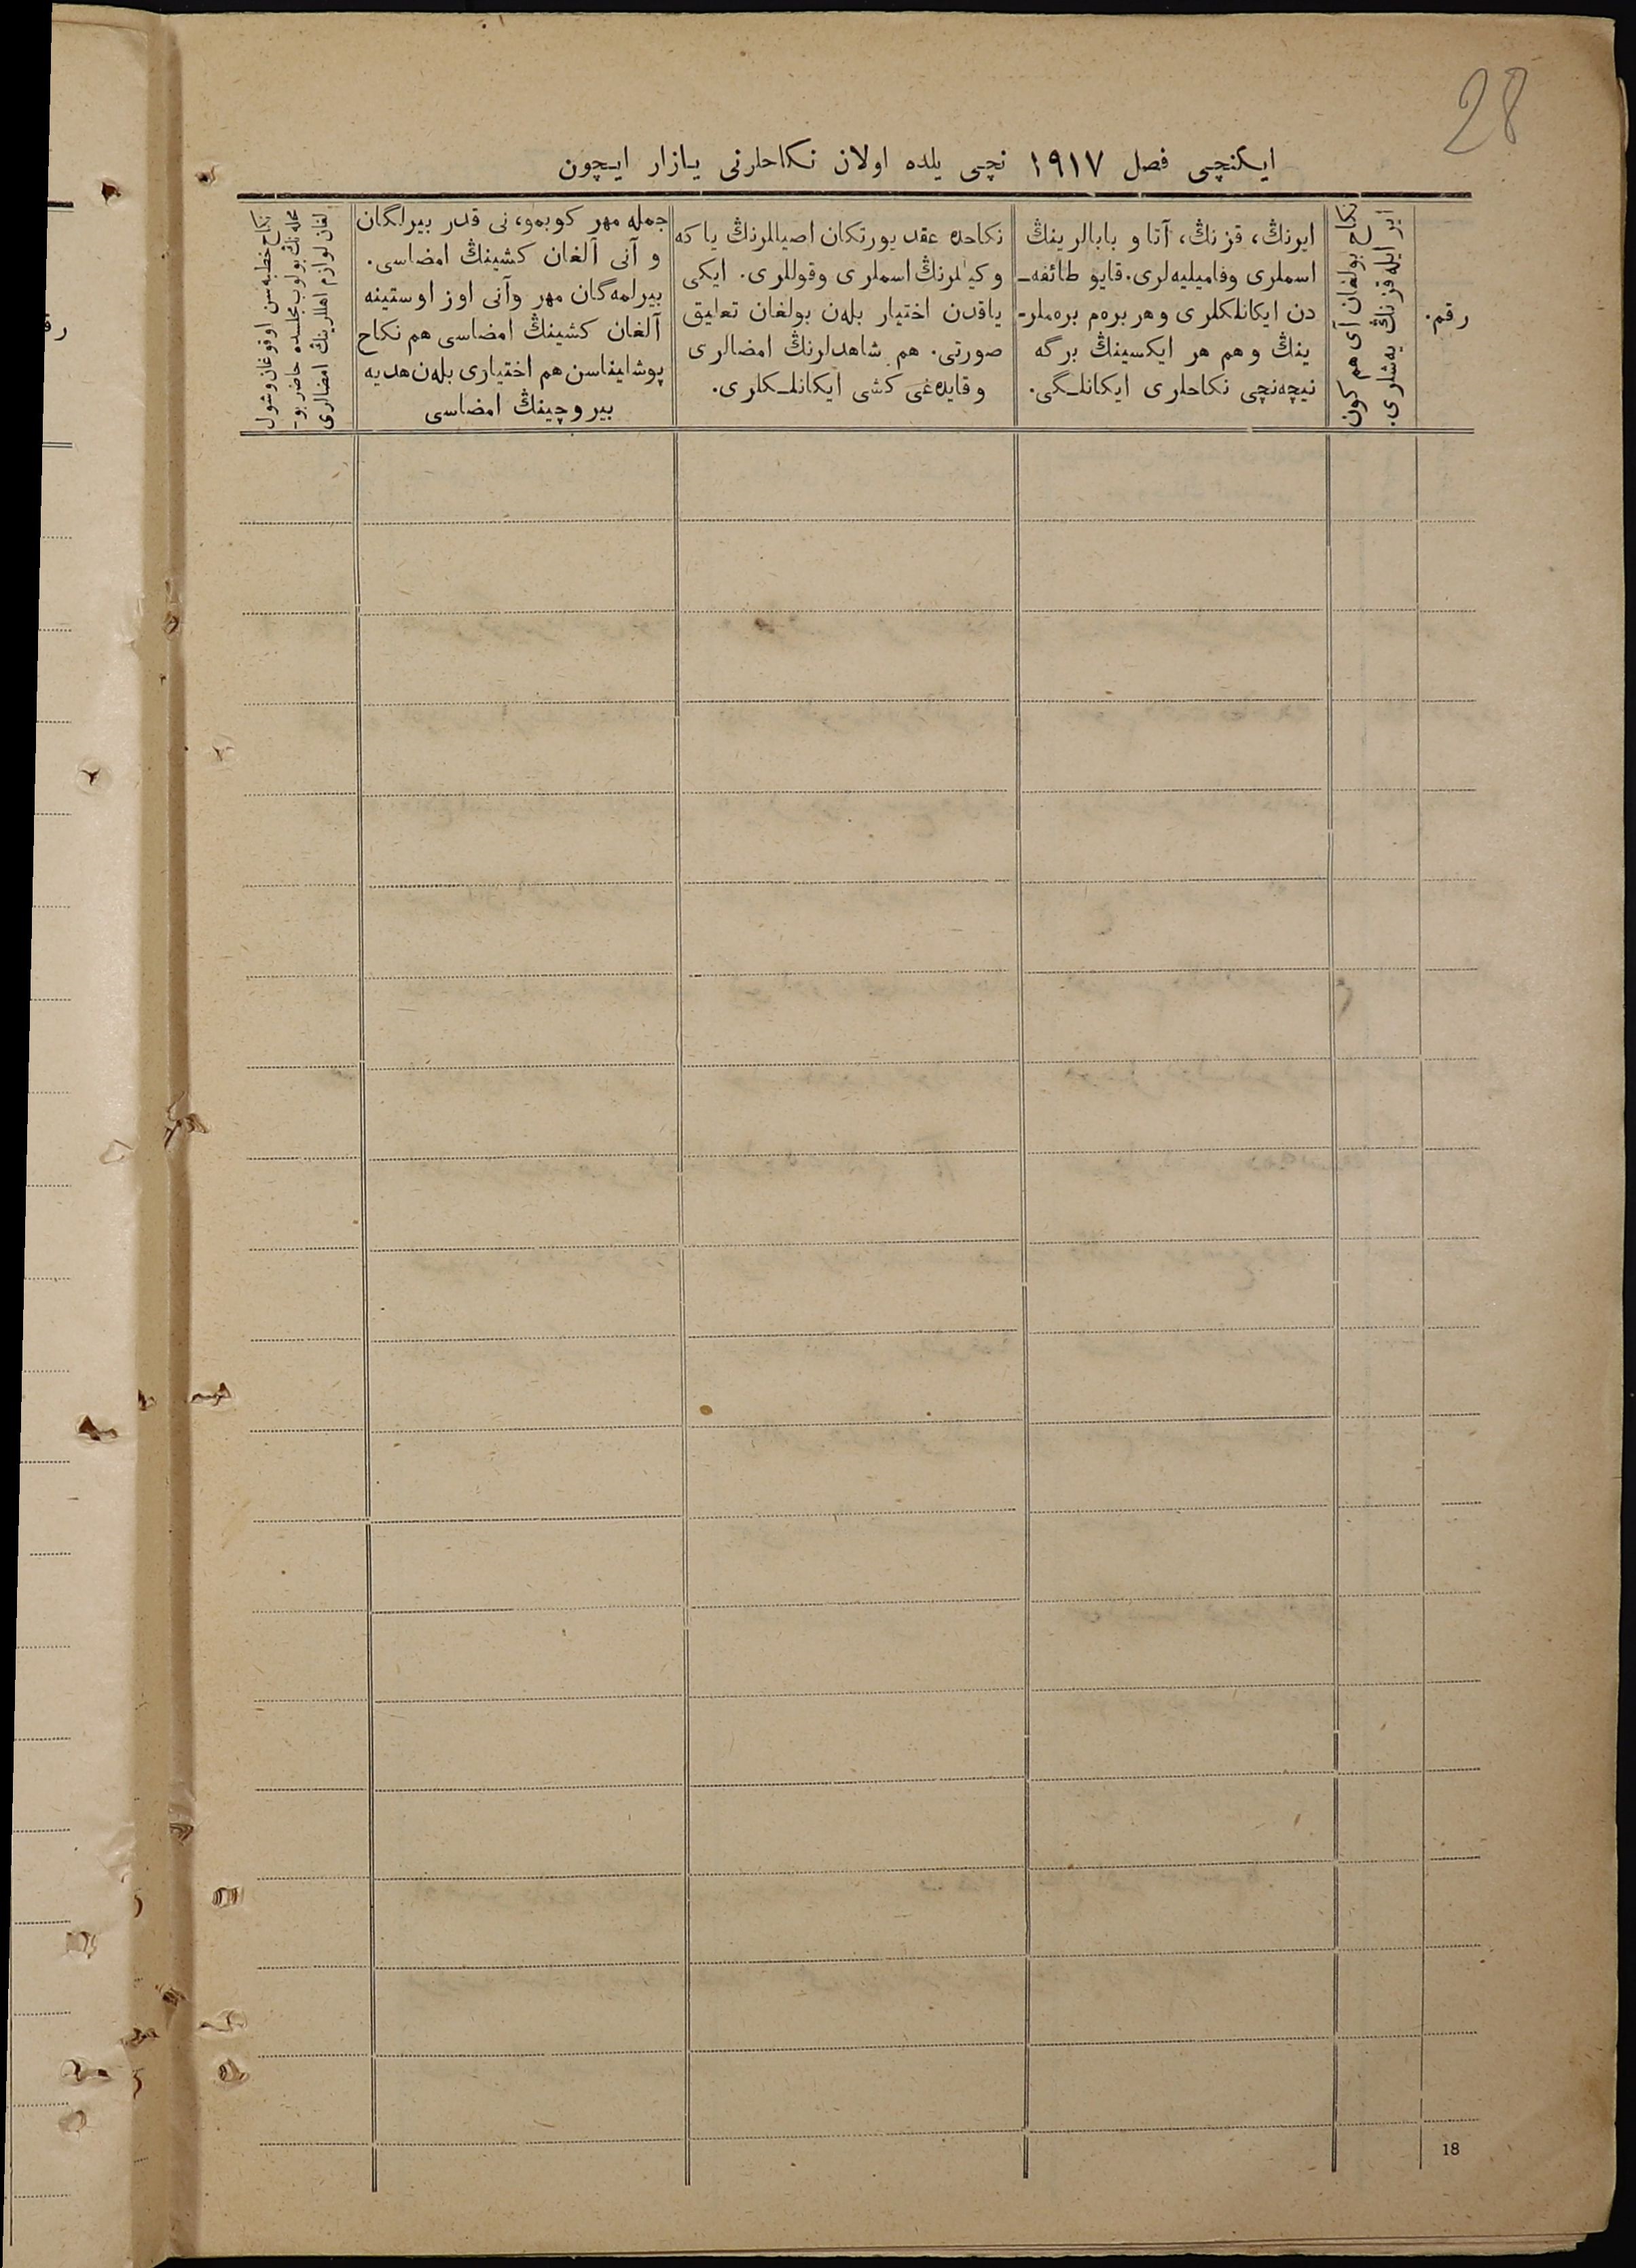 28
ایکنچی فصل ١٩١٧ نچی یلده اولان نکاحلرنی یازار ایچون
رقم.
ایر ایله قزنڭ یه‌شلری.
نکاح بولغان آی هم کون
ایرنڭ، قزنڭ، آتا و بابالرینڭ
اسملری وفامیلیه‌لری. قایو طائفه‌ـ
دن ایکانلکلری وهر بره‌م بره‌ملرـ
ینڭ وهم هر ایکسینڭ برگه
نیچه‌نچی نکاحلری ایکانلـگی.
نکاحده عقد یورتکان اصیللرنڭ یا که
وکیلرنڭ اسملری وقوللری. ایکی
یاقدن اختیار بله‌ن بولغان تعلیق
صورتی. هم شاهدلرنڭ امضالری
وقایده‌غی کشی ایکانلـکلری.
جمله مهر کوبمو، نی قدر بیرلگان
و آنی آلغان کشینڭ امضاسی.
بیرلمه‌گان مهر وآنی اوز اوستینه
آلغان کشینڭ امضاسی هم نکاح
پوشلیناسن هم اختیاری بله‌ن هدیه
بیروچینڭ امضاسی
نکاح خطبه‌سن اوقوغان وشول
محله‌نڭ بولوب مجلسده حاضر بوـ
لغان لوازم اهللرینڭ امضالری
رق
18